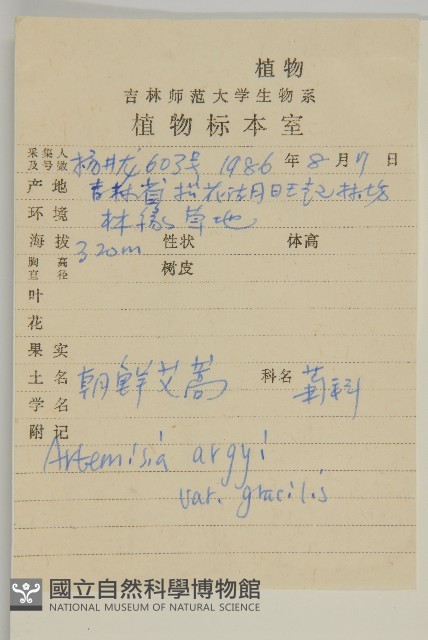 植物
吉林师范大学生物系
植物标本室
采集人及号数 杨井龙 603号 1986 年 8 月 7 日
产地 吉林省松花湖旺起林场
环境 林缘草地
海拔 320m 性状 体高
胸高直径 树皮
叶
花
果实
土名 朝鲜艾蒿 科名 菊科
学名
附记
Artemisia argyi
var. gracilis
國立自然科學博物館
NATIONAL MUSEUM OF NATURAL SCIENCE